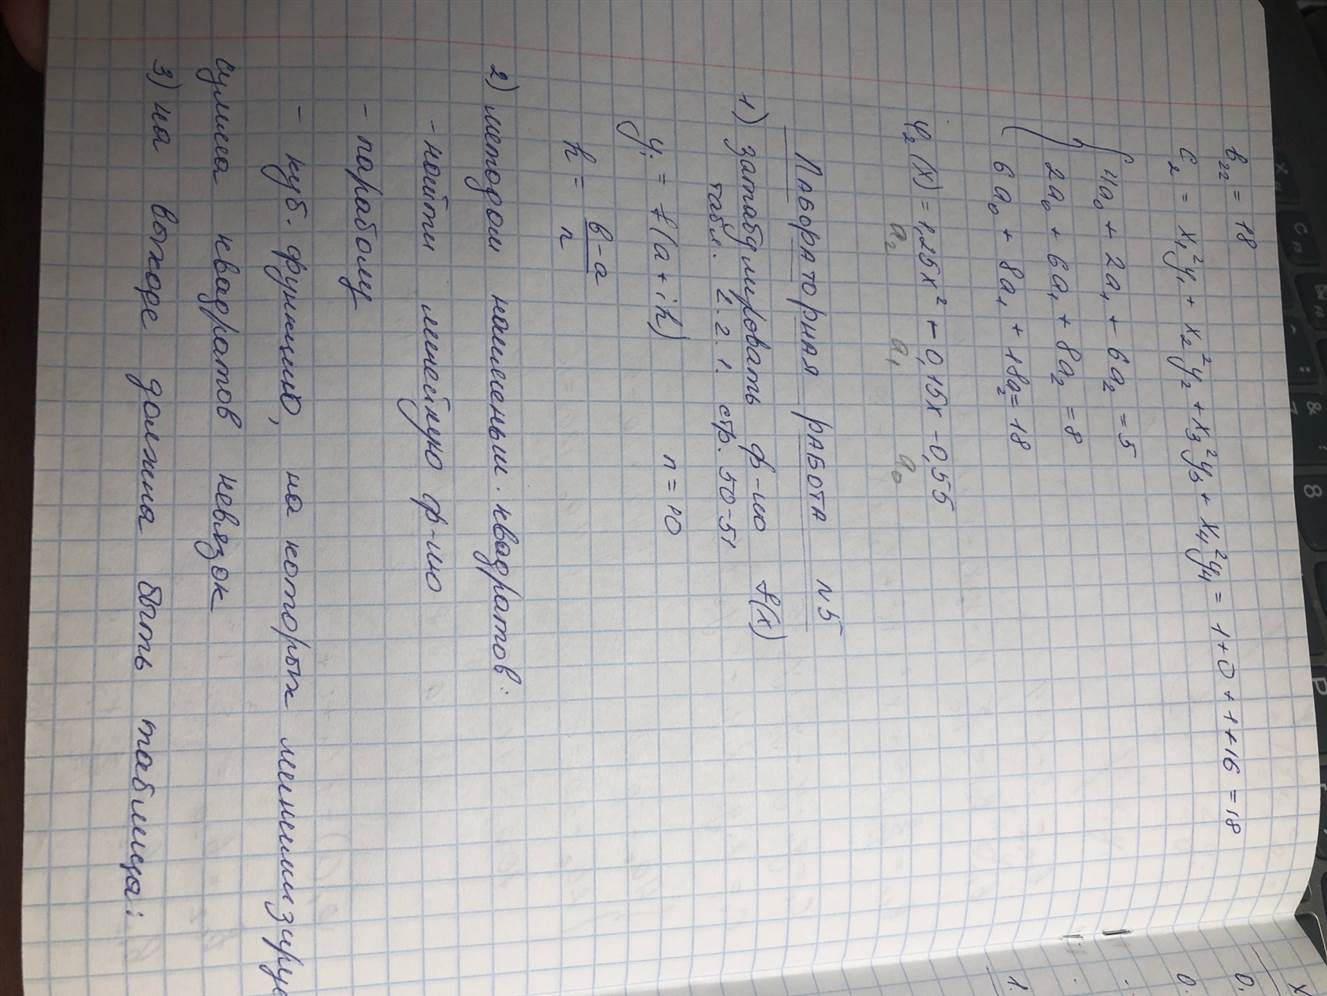 b₂₂ = 18
c₂ = x₁²y₁ + x₂²y₂ + x₃²y₃ + x₄²y₄ = 1+0+1+16 = 18
{ 4a₀ + 2a₁ + 6a₂ = 5
2a₀ + 6a₁ + 8a₂ = 8
6a₀ + 8a₁ + 18a₂ = 18
φ₂(x) = 1,25x² + 0,15x - 0,55
a₂ a₁ a₀
ЛАБОРАТОРНАЯ РАБОТА №5
1) затабулировать ф-ию f(x)
табл. 2.2.1. стр. 50-51
yᵢ = f(a + ih) n = 10
h = (b-a)/n
2) методом наименьш. квадратов:
- найти линейную ф-ию
- параболу
- куб. функцию, на которых минимизируе
сумма квадратов невязок
3) на выходе должна быть таблица: